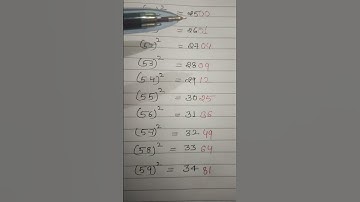 = 2500
= 2601
(52)² = 2704
(53)² = 2809
(54)² = 2912
(55)² = 3025
(56)² = 3136
(57)² = 3249
(58)² = 3364
(59)² = 3481